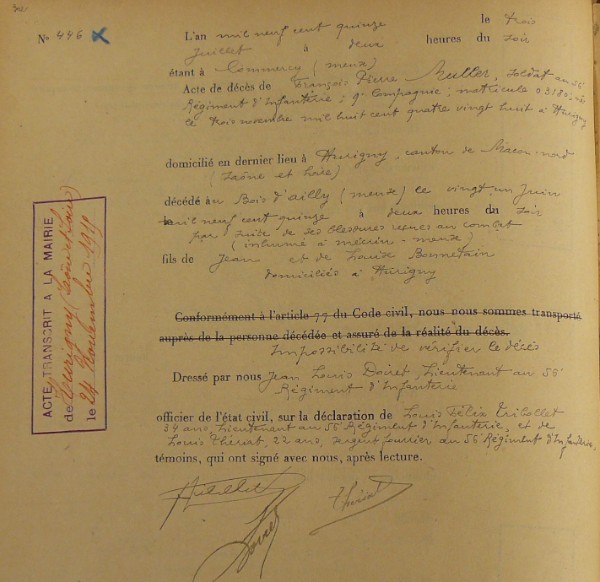 N° 446 X
L'an mil neuf cent quinze le trois
Juillet à deux heures du soir
étant à Commercy (meuse)
Acte de décès de François Pierre Muller, soldat au 56e
Régiment d'Infanterie; 9e Compagnie; matricule 03180, né
le trois novembre mil huit cent quatre vingt huit à Hurigny
domicilié en dernier lieu à Hurigny, canton de Macon-nord
(Saône et Loire)
décédé au Bois d'ailly (meuse) le vingt un Juin
le mil neuf cent quinze à deux heures du soir
par suite de ses blessures reçues au combat
(inhumé à mécrin - meuse)
fils de Jean et de Louise Bonnetain
domiciliés à Hurigny
Conformément à l'article 77 du Code civil, nous nous sommes transporté
auprès de la personne décédée et assuré de la réalité du décès.
Impossibilité de vérifier le décès
Dressé par nous Jean Louis Doiret, Lieutenant au 56e
Régiment d'Infanterie
officier de l'état civil, sur la déclaration de Louis Félix Tribollet
34 ans, Lieutenant au 56e Régiment d'Infanterie, et de
Louis Thériat, 22 ans, sergent fourrier au 56e Régiment d'Infanterie,
témoins, qui ont signé avec nous, après lecture.
ACTE TRANSCRIT A LA MAIRIE
de Hurigny (Saône et Loire)
le 24 Novembre 1919